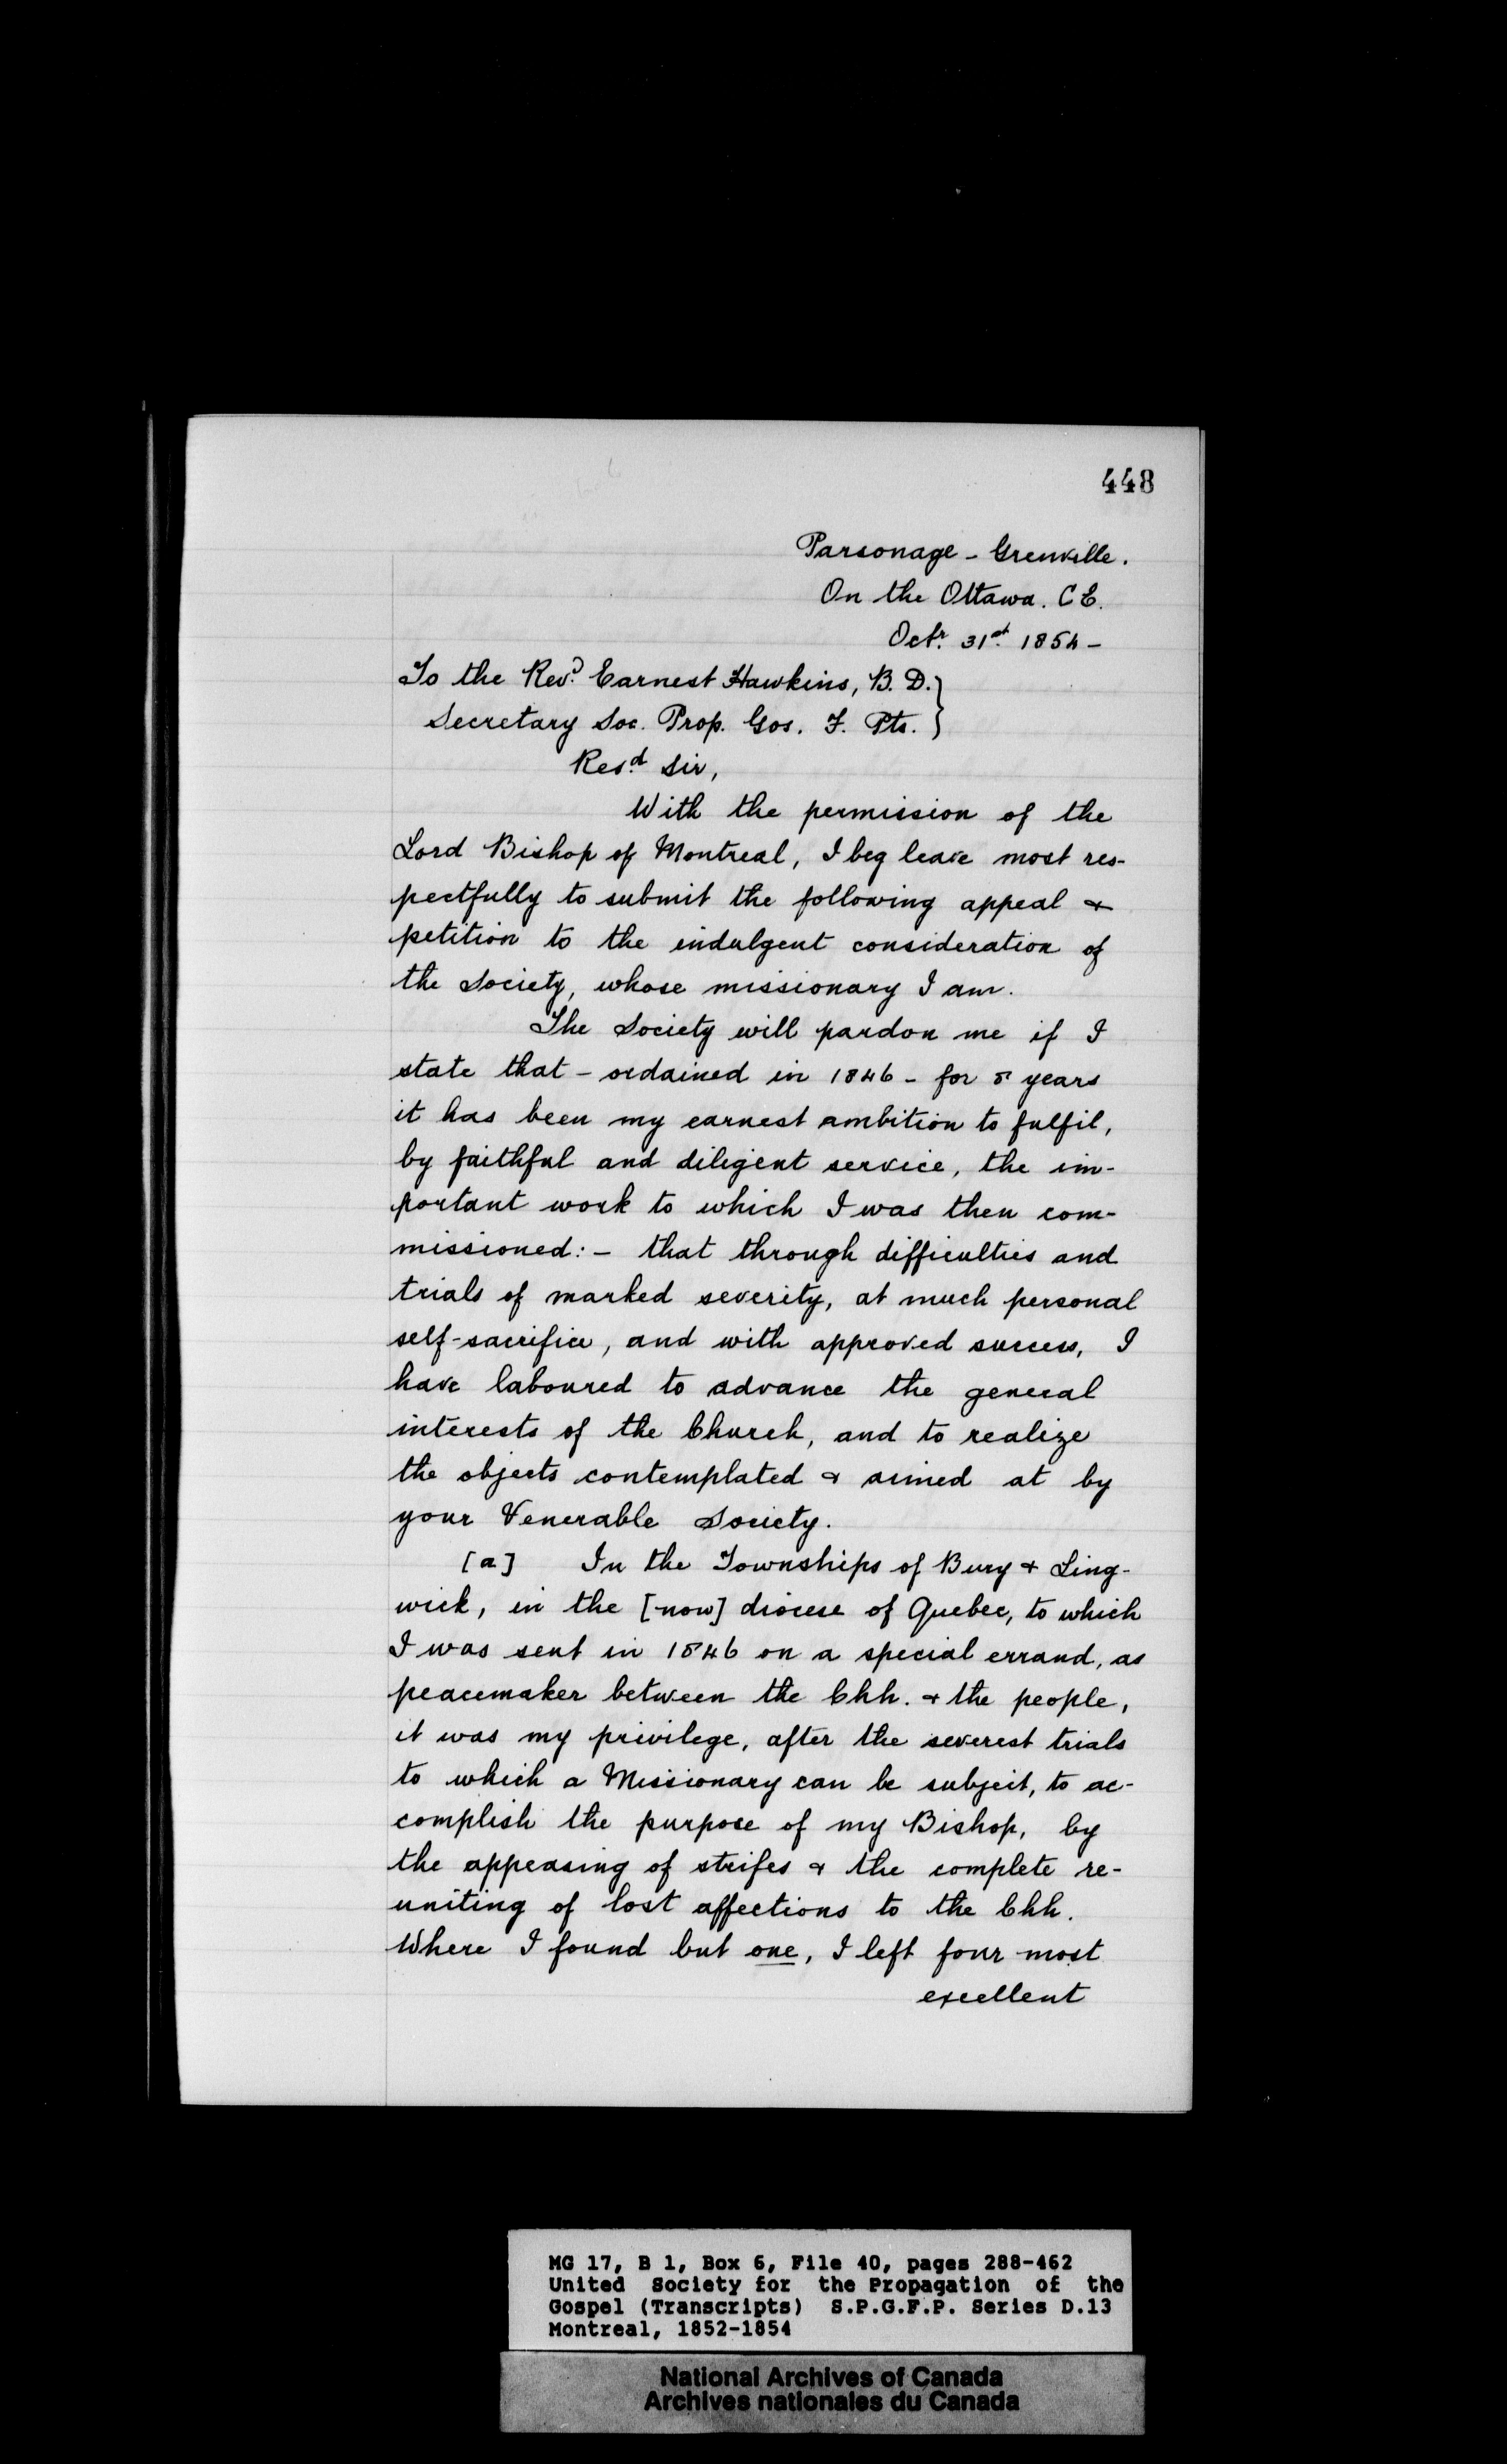 448
Parsonage - Grenville.
On the Ottawa. C E.
Octr. 31st. 1854 -
To the Revd. Earnest Hawkins, B. D. }
Secretary Soc. Prop. Gos. F. Pts. }
Revd. Sir,
With the permission of the
Lord Bishop of Montreal, I beg leave most res-
pectfully to submit the following appeal &
petition to the indulgent consideration of
the Society, whose missionary I am.
The Society will pardon me if I
state that - ordained in 1846 - for 8 years
it has been my earnest ambition to fulfil,
by faithful and diligent service, the im-
portant work to which I was then com-
missioned: - that through difficulties and
trials of marked severity, at much personal
self-sacrifice, and with approved success, I
have laboured to advance the general
interests of the Church, and to realize
the objects contemplated & aimed at by
your Venerable Society.
[a] In the Townships of Bury & Ling-
wick, in the [now] diocese of Quebec, to which
I was sent in 1846 on a special errand, as
peacemaker between the Chh. & the people,
it was my privilege, after the severest trials
to which a Missionary can be subject, to ac-
complish the purpose of my Bishop, by
the appeasing of strifes & the complete re-
uniting of lost affections to the Chh.
Where I found but one, I left four most
excellent
MG 17, B 1, Box 6, File 40, pages 288-462
United Society for the Propagation of the
Gospel (Transcripts) S.P.G.F.P. Series D.13
Montreal, 1852-1854
National Archives of Canada
Archives nationales du Canada